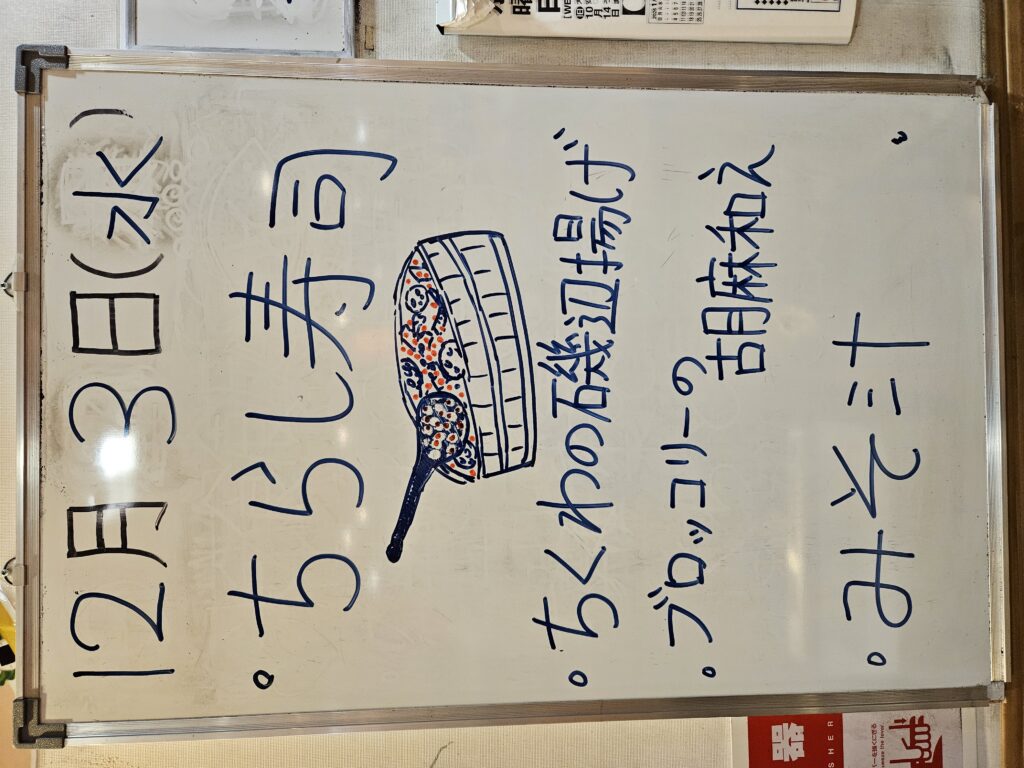 12月3日(水)
・ちらし寿司
・ちくわの石磯辺揚げ
・ブロッコリーの
胡麻和え
・みそ汁
器
SHER